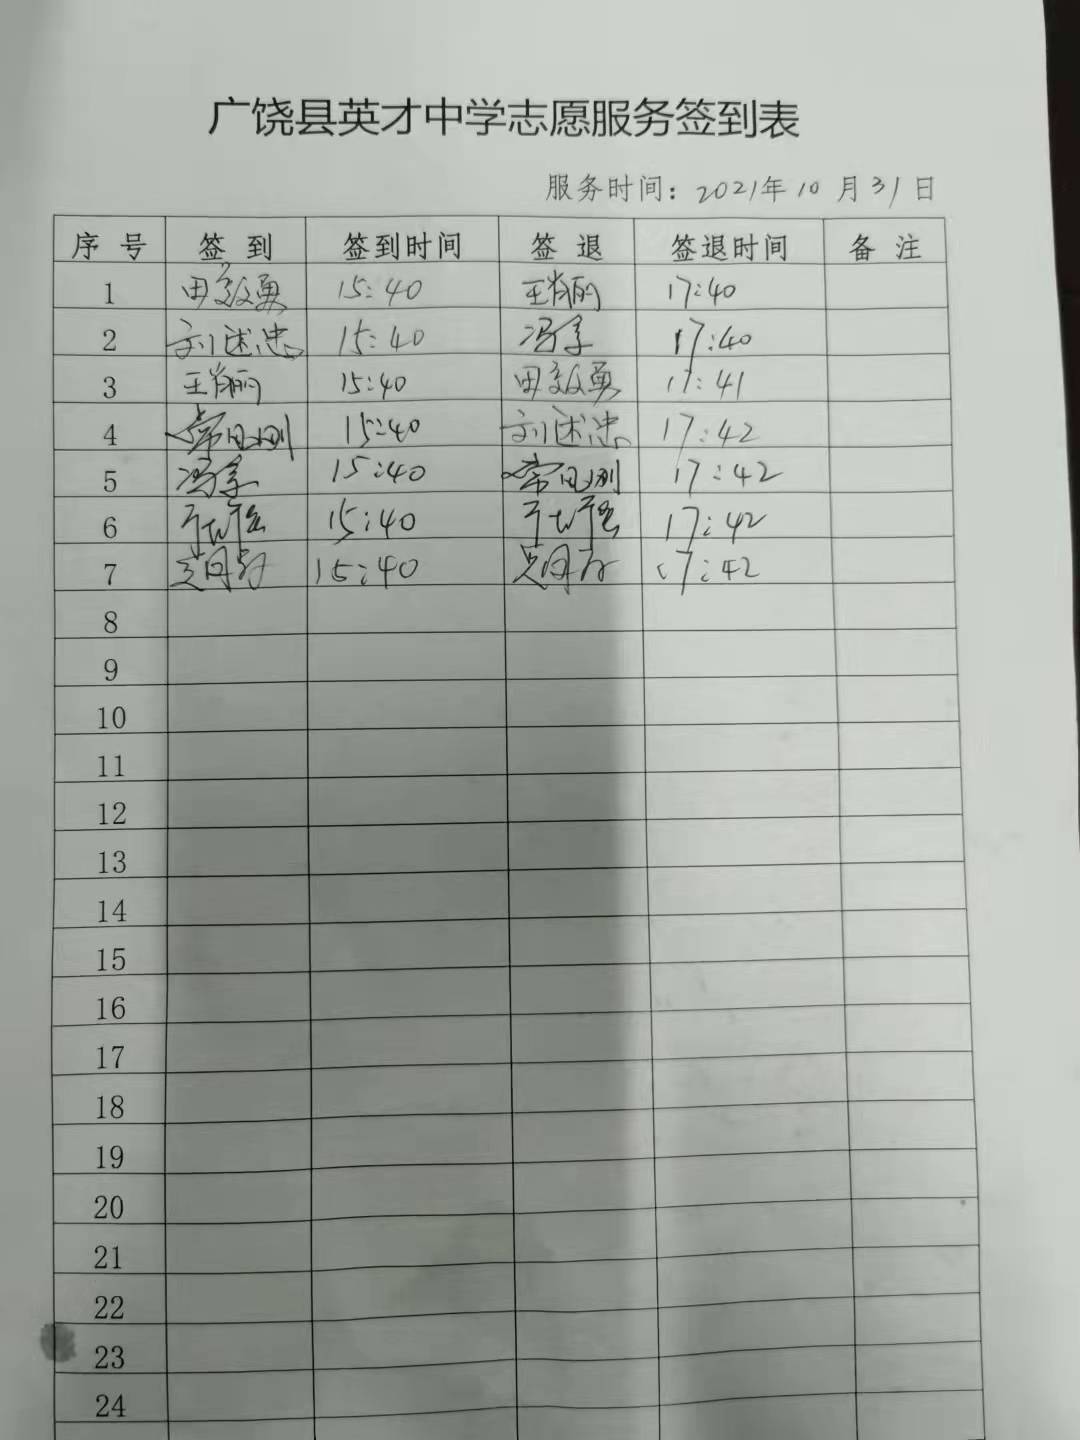 广饶县英才中学志愿服务签到表
服务时间：2021年10月31日
序号 签到 签到时间 签退 签退时间 备注
1 田效勇 15:40 王肖丽 17:40
2 刘述忠 15:40 冯军 17:40
3 王肖丽 15:40 田效勇 17:41
4 15:40 刘述忠 17:42
5 冯军 15:40 17:42
6 15:40 17:42
7 15:40 17:42
8
9
10
11
12
13
14
15
16
17
18
19
20
21
22
23
24